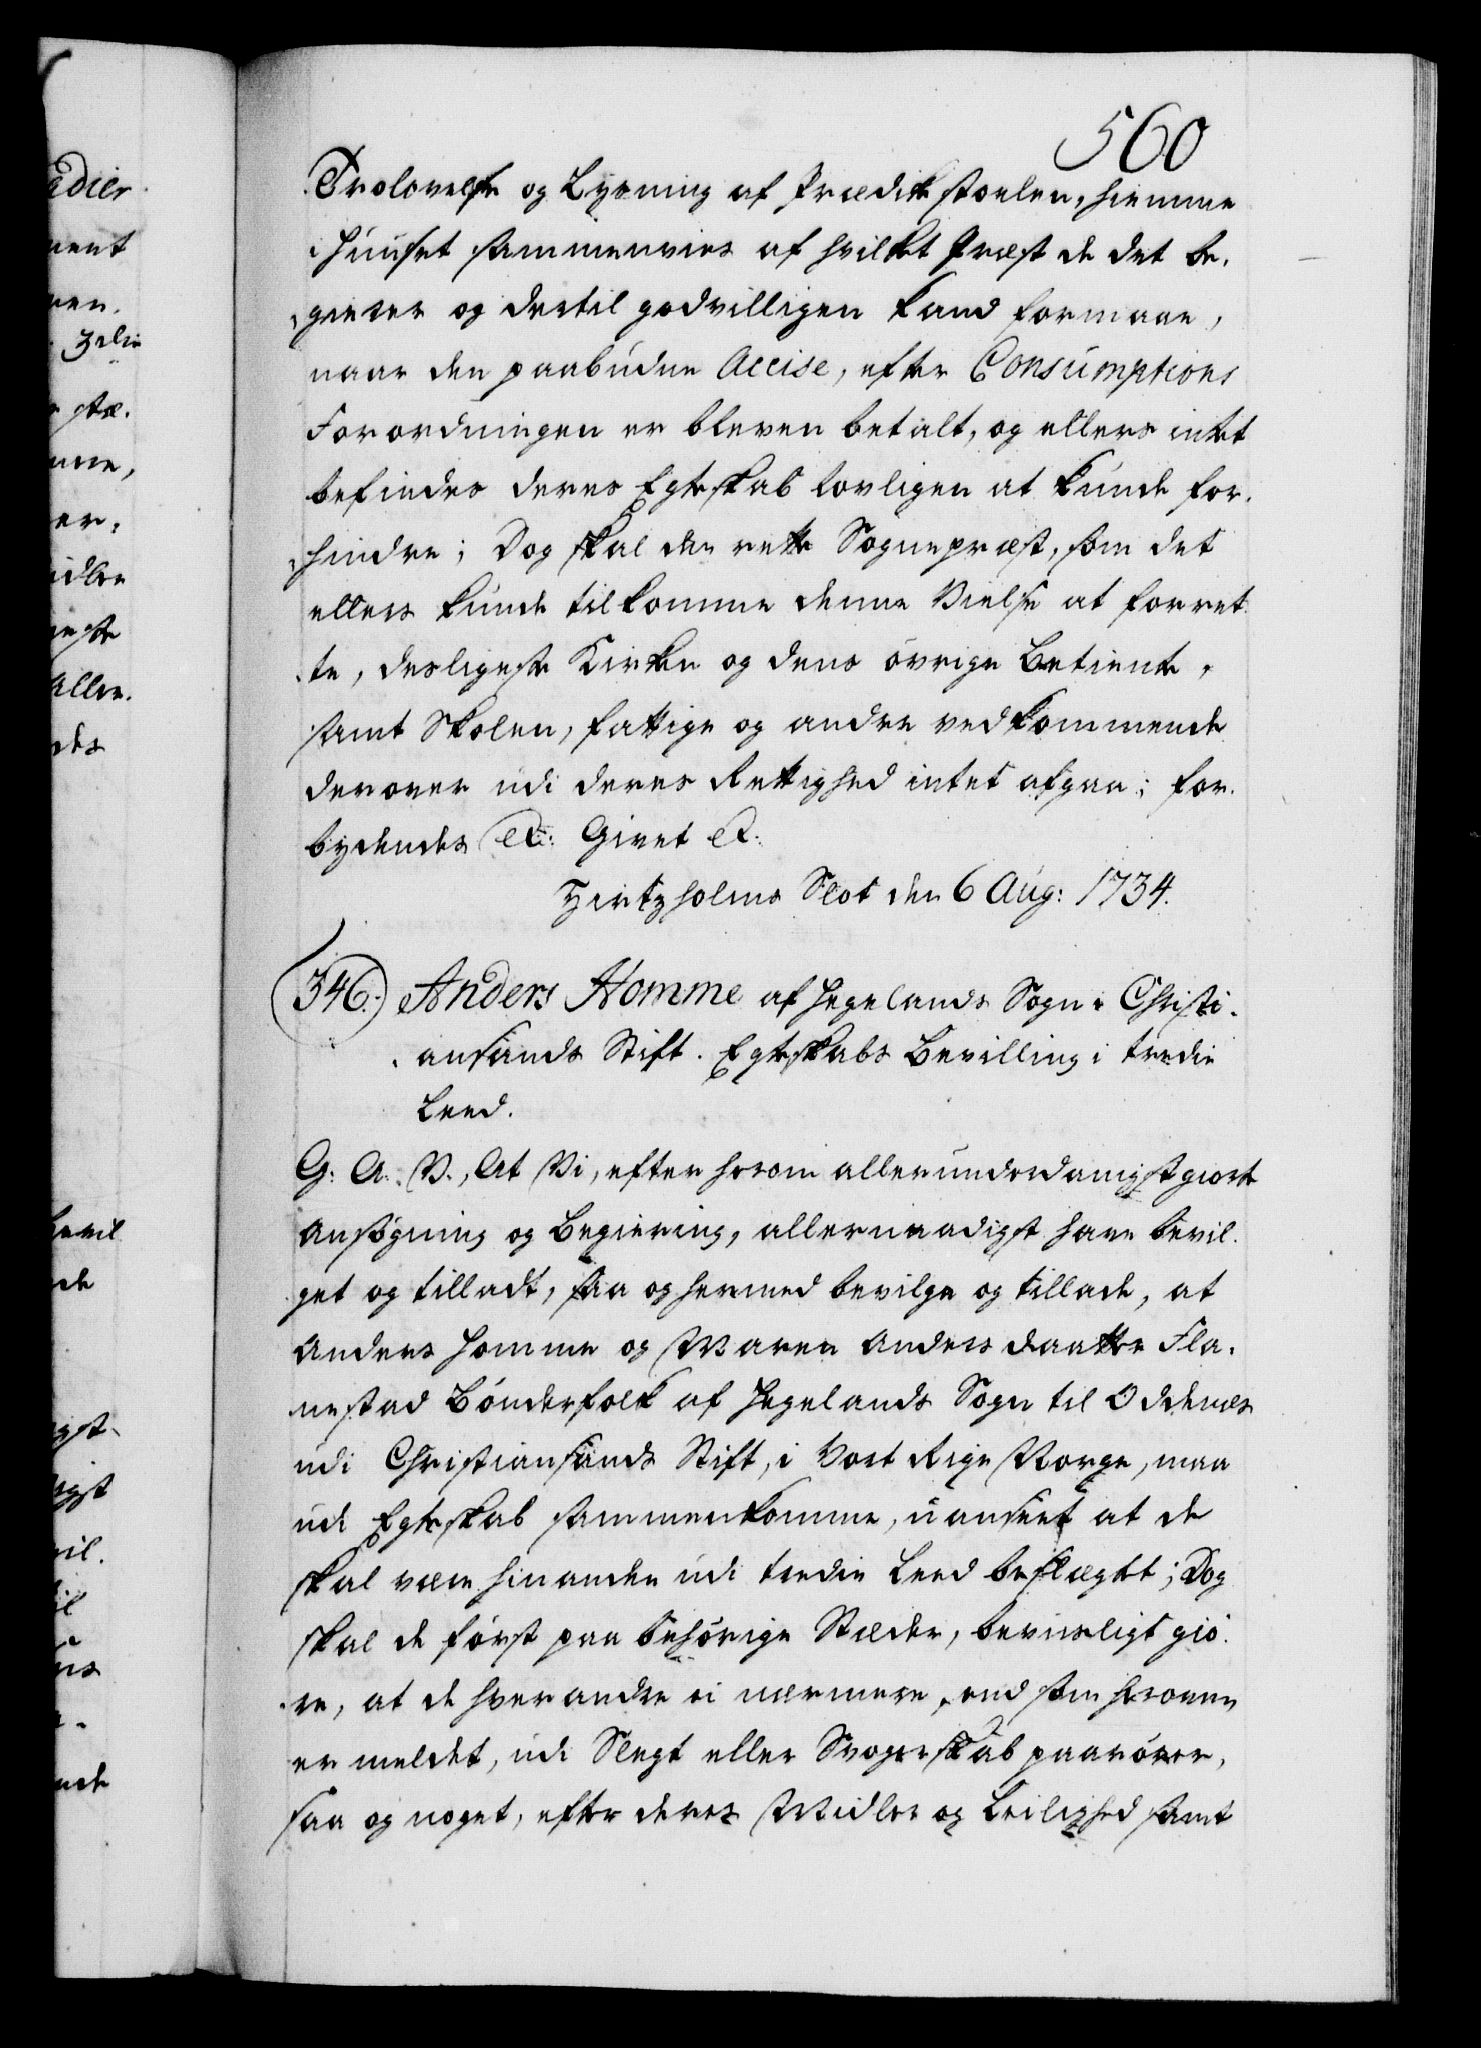 560
Trolovelse og Lysning af Prædikestoelen, hiemme
i Huuset sammenvies af hvilket Præst de det be-
gierer og dertil godvilligen kand formaae,
naar den paabudne Accise, efter Consumptions
Forordningen er bleven betalt, og ellers intet
befindes deres Egteskab lovligen at kunde for-
hindre; Dog skal den rette Sognepræst, som det
ellers kunde tilkomme denne Vielse at forret-
te, desligeste Kirken og dens övrige Betiente,
samt Skolen, fattige og andre vedkommende
derover udi deres Rettighed intet afgaa; for-
bydendes etc: Givet etc:
Hirtzholms Slot den 6 Aug: 1734.
346. Anders Homme af Hegelands Sogn i Christi-
ansands Stift. Egteskabs Bevilling i tredie
Leed.
G: A: V., At Vi, efter herom allerunderdanigst giorte
Ansögning og Begiering, allernaadigst have bevil-
get og tilladt, saa og hermed bevilge og tillade, at
Anders Homme og Maren Anders daatter Fla-
nestad Bönderfolk af Hegelands Sogn til Oddenæs
udi Christiansands Stift, i Vort Rige Norge, maa
udi Egteskab sammenkomme, uanseet at de
skal være hinanden udi tredie Leed beslægtet; Dog
skal de först paa behörige Stæder, beviisligt giö-
re, at de hverandre ei nærmere, end som heroven
er meldet, udi Slegt eller Svogerskab paarörer,
saa og noget, efter deres Midler og Leilighed samt